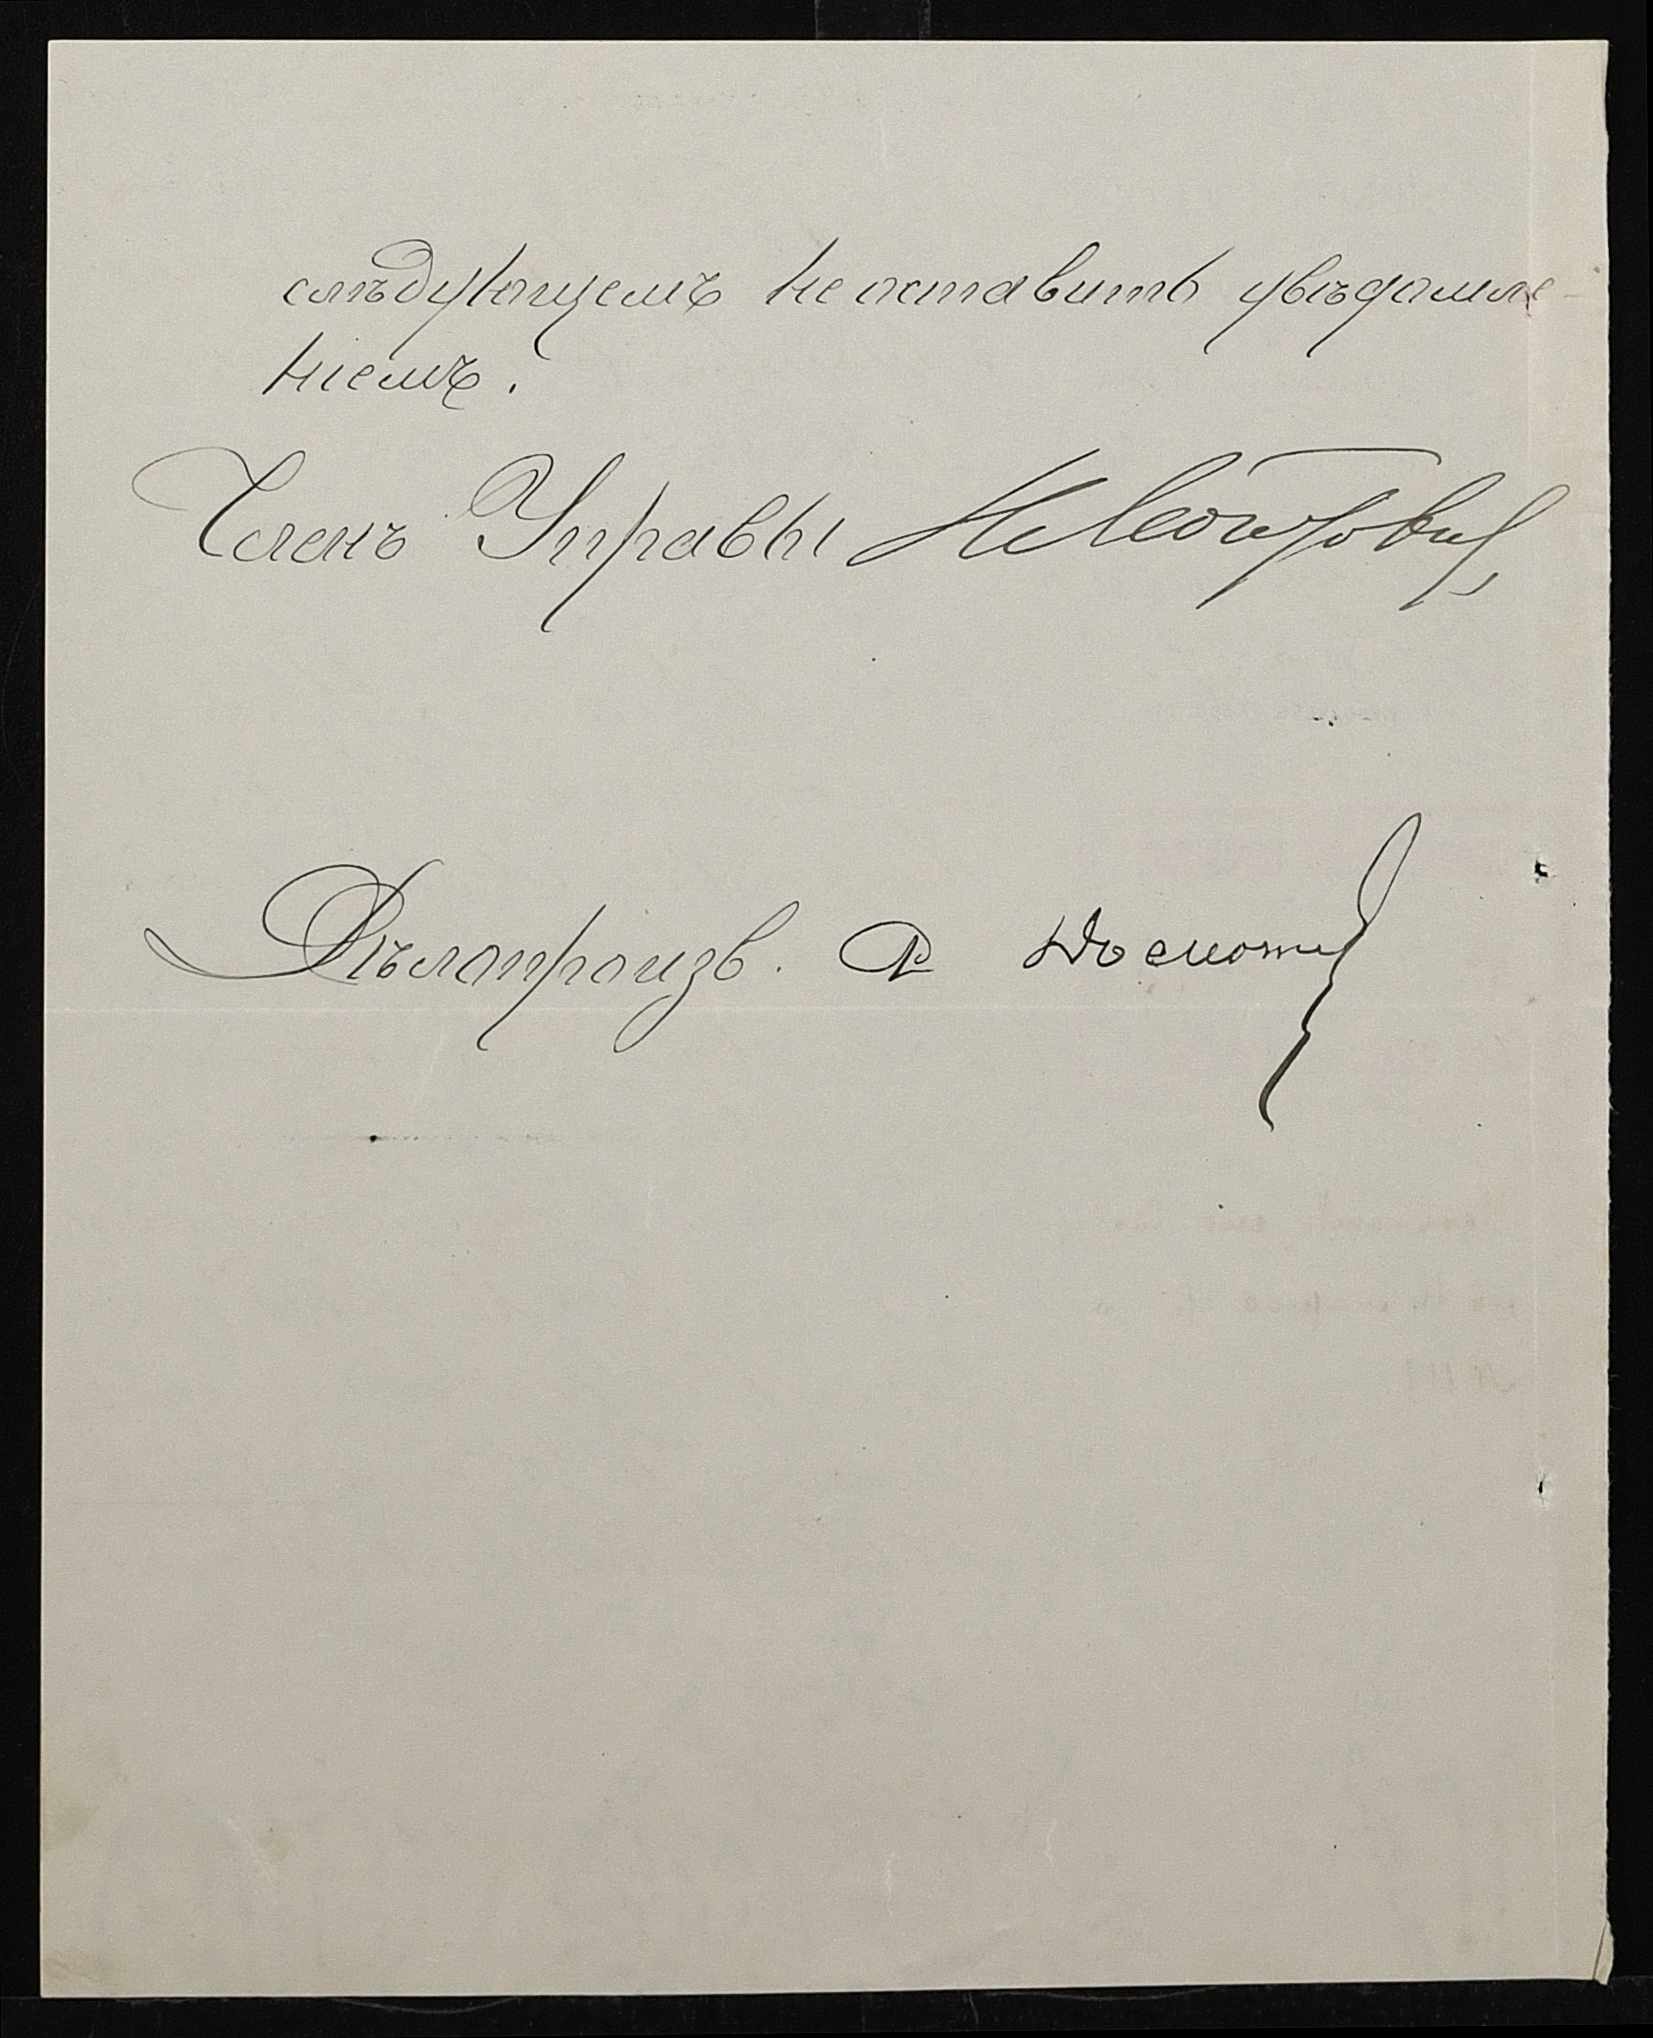 слѣдующемъ не оставить увѣдомле-
ніемъ.
Членъ Управы
Дѣлопроизв.